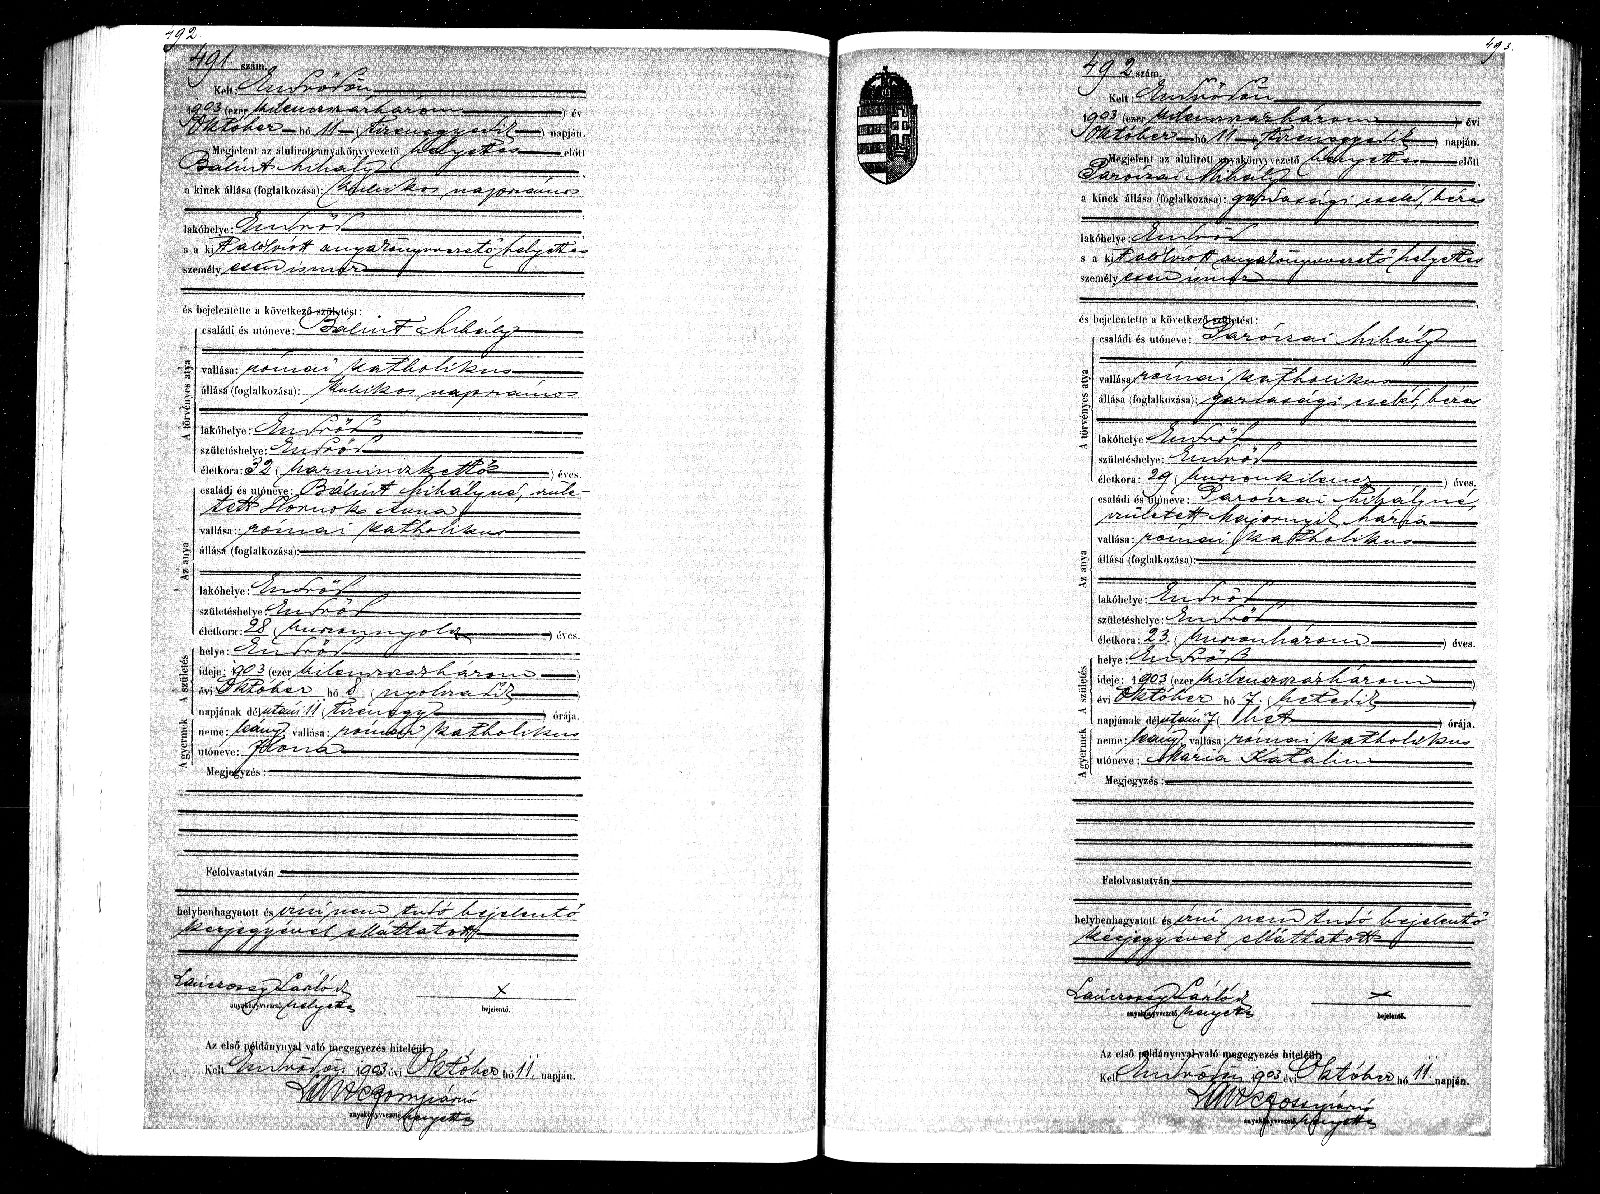 492.
491 szám.
Kelt Endrődön
1903 (ezer kilenczszázhárom) év
Október hó 11 (tizenegyedik) napján.
Megjelent az alulirott anyakönyvvezető helyettes előtt
Bálint Mihály
a kinek állása (foglalkozása): kubikos napszámos
lakóhelye: Endrőd
s a kit alólirott anyakönyvvezető helyettes
személyesen ismer
és bejelentette a következő születést:
A törvényes atya
családi és utóneve: Bálint Mihály
vallása: római katholikus
állása (foglalkozása): kubikos napszámos
lakóhelye: Endrőd
születéshelye: Endrőd
életkora: 32 (harminczkettő) éves.
Az anya
családi és utóneve: Bálint Mihályné, szüle-
tett Hornok Anna
vallása: római katholikus
állása (foglalkozása):
lakóhelye: Endrőd
születéshelye: Endrőd
életkora: 28 (huszonnyolcz) éves.
A születés
helye: Endrőd
ideje: 1903 (ezer kilenczszázhárom)
évi Október hó 8 (nyolczadik)
napjának délutáni 11 (tizenegy) órája.
A gyermek
neme: leány vallása: római katholikus
utóneve: Ilona
Megjegyzés:
Felolvastatván
helybenhagyatott és írni nem tudó bejelentő
kézjegyével elláttatott
László
anyakönyvvezető helyettes
x
bejelentő.
Az első példánynyal való megegyezés hiteléül
Kelt Endrődön 1903 évi Október hó 11. napján.
anyakönyvvezető helyettes
493.
492 szám.
Kelt Endrődön
1903 (ezer kilenczszázhárom) évi
Október hó 11 (tizenegyedik) napján.
Megjelent az alulirott anyakönyvvezető helyettes előtt
Paróczai Mihály
a kinek állása (foglalkozása): gazdasági cseléd, béres
lakóhelye: Endrőd
s a kit alólirott anyakönyvvezető helyettes
személyesen ismer
és bejelentette a következő születést:
A törvényes atya
családi és utóneve: Paróczai Mihály
vallása: római katholikus
állása (foglalkozása): gazdasági cseléd, béres
lakóhelye: Endrőd
születéshelye: Endrőd
életkora: 29 (huszonkilencz) éves.
Az anya
családi és utóneve: Paróczai Mihályné,
született Majornyik Mária
vallása: római katholikus
állása (foglalkozása):
lakóhelye: Endrőd
születéshelye: Endrőd
életkora: 23 (huszonhárom) éves.
A születés
helye: Endrőd
ideje: 1903 (ezer kilenczszázhárom)
évi Október hó 7 (hetedik)
napjának délutáni 7 (hét) órája.
A gyermek
neme: leány vallása: római katholikus
utóneve: Mária Katalin
Megjegyzés:
Felolvastatván
helybenhagyatott és írni nem tudó bejelentő
kézjegyével elláttatott
László
anyakönyvvezető helyettes
x
bejelentő.
Az első példánynyal való megegyezés hiteléül
Kelt Endrődön 1903 évi Október hó 11. napján.
anyakönyvvezető helyettes